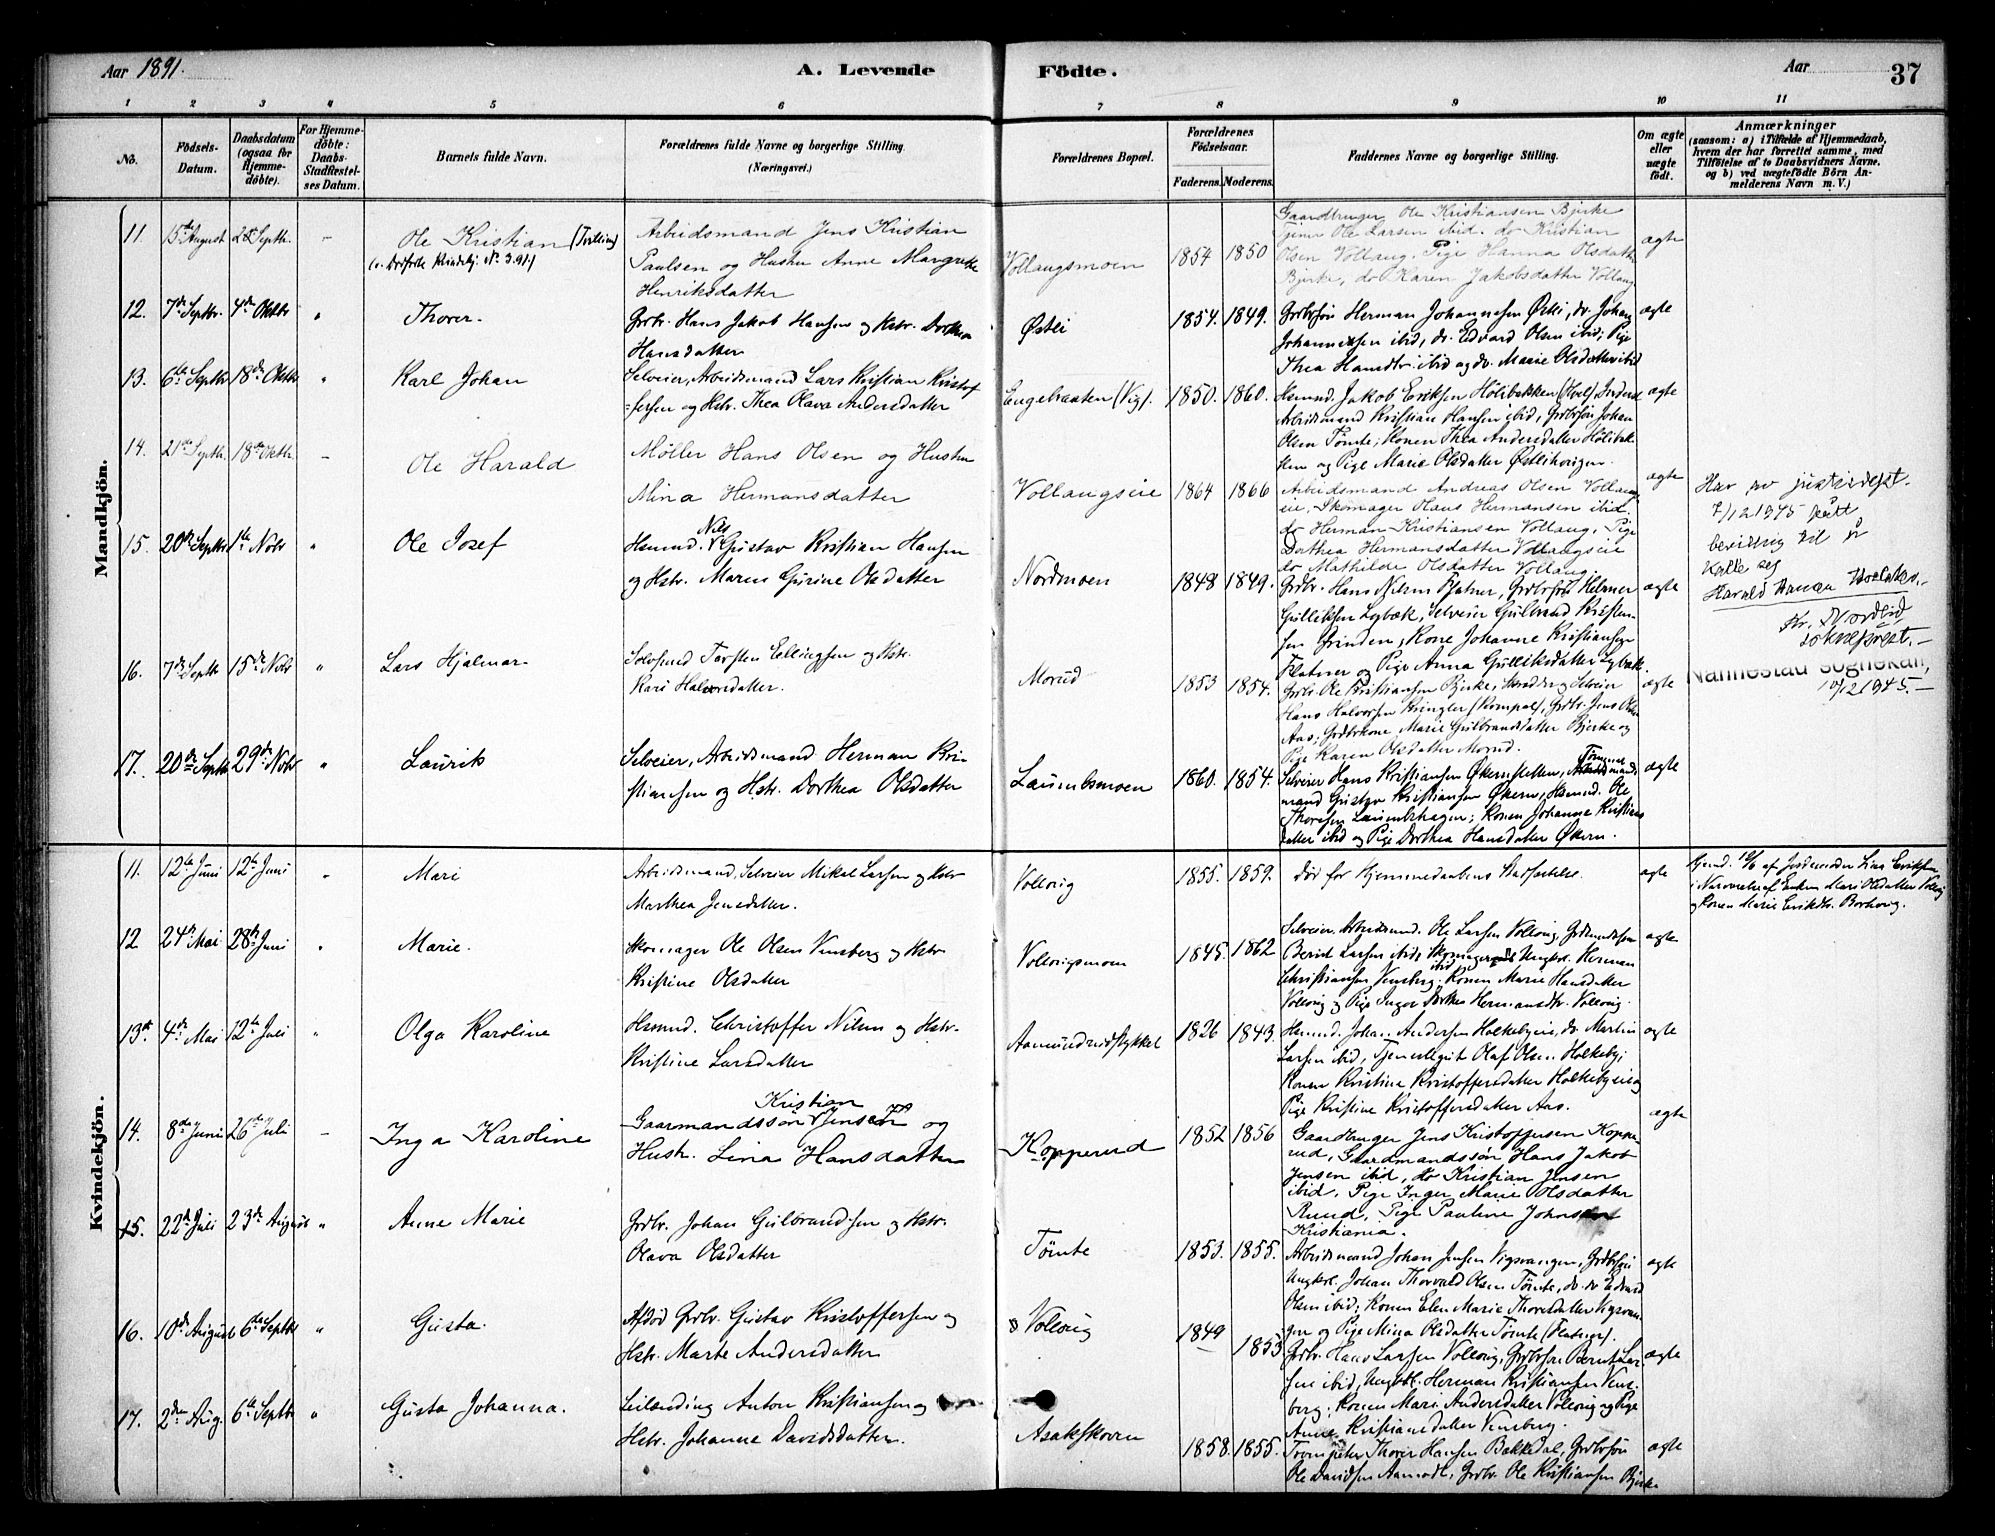 Aar 1891.
A. Levende
Födte.
Aar
37
1 2 3 4 5 6 7 8 9 10 11
No.
Födsels-
Datum.
Daabsdatum
(ogsaa for
Hjemme-
döbte).
For Hjemme-
döbte:
Daabs-
Stadfæstel-
ses Datum.
Barnets fulde Navn.
Forældrenes fulde Navne og borgerlige Stilling.
(Næringsvei.)
Forældrenes Bopæl.
Forældrenes
Födselsaar.
Faderens. Moderens.
Faddernes Navne og borgerlige Stilling.
Om ægte
eller
uægte
födt.
Anmærkninger
(saasom: a) i Tilfælde af Hjemmedaab,
hvem der har forrettet samme, med
Tilföielse af to Daabsvidners Navne,
og b) ved uægtefödte Börn An-
melderens Navn m. V.)
Mandkjön.
11. 15de August Septbr. – Ole Kristian (Tvilling)
Arbeidsmand Jens Kristian
Paulsen og Hustru Anne Margrethe
Henriksdatter
Vollaugsmoen 1854 1850
Gaardbruger Ole Kristiansen Bjerke
Tjener Ole Larsen ibid. do Kristian
Olsen Vollaug. Pige Hanna Olsdatter
Bjerke, do Karen Jakobsdatter Vollaug
ægte
12. 7de Septbr. 4de Oktbr " Thorer.
Grdbr. Hans Jakob Hansen og Hstr. Dorthea
Hansdatter
Østli 1854. 1849.
Grdbrsøn Herman Johannesen Østli, do. Johan
Johannessen ibid, do. Edvard Olsen ibid; Pige
Thea Hansdtr. ibid og do. Marie Olsdatter ibid
ægte
13. 6te Septbr 18de Oktbr " Karl Johan
Selveier, Arbeidsmand Lars Kristian Kristof
=fersen og Hstr. Thea Olava Andersdatter
Engebraaten (Vig). 1850. 1860.
Hsmnd. Jakob Eriksen Hölibakken
Arbeidsmand Kristian Hansen ibid, Grdbrsön Johan
Olsen Tömte; Konen Thea Andersdatter Hölibak-
ken og Pige Marie Olsdatter
ægte
14. 21de Septb. 18de Oktbr. – Ole Harald
Møller Hans Olsen og Hustru
Mina Hermansdatter
Vollaugseie 1864 1866
Arbeidsmand Andreas Olsen Vollaugs
eie, Skomager Olaus Hermansen ibid.
do Herman Kristiansen Vollaug. Pige
Dorthea Hermansdatter Vollaugseie
do Mathilde Olsdatter Vollaug.
ægte
Har av justisdept.
7/12 1945 fått
bevilling til å
kalle seg
Harald Hansen
sokneprest.–
Nannestad sognekall,
10/12 1945.–
15. 20de Septbr 1ste Novbr " Ole Josef
Hsmnd. Nils Gustav Kristian Hansen
og Hstr. Maren Gurine Olsdatter
Nordmoen 1848 1849.
Grdbr. Hans Nilsen Flatner, Grdbrsøn Helmer
Gulliksen Lybæk, Selveier Gulbrand Kristen-
sen Grinden; Kone Johanne Kristiansen
Flatner og Pige Anna Gulliksdatter Lybæk.
ægte
16. 7de Septbr 15de Novbr " Lars Hjalmar
Torsten Ellingsen og Hstr.
Kari Halvorsdatter.
Morud 1853 1854.
Grdbr. Ole Kristiansen Bjerke, Skrædder og Selveier
Hans Halvorsen Kringler, Grdbr. Jens Olsen
Aas; Grdbrkone Marie Gulbrandsdatter Bjerke og
Pige Karen Olsdatter Morud.
ægte
17. 20de Septbr 29de Novbr " Laurits
Selveier, Arbeidsmand Herman Kri-
stiansen og Hstr. Dorthea Olsdatter
Laumbsmoen 1860. 1854.
Selveier Hans Kristiansen Økernsletten,
Gustav Kristiansen Økern, Hsmnd. Ole
Thoresen Laumbshagen; Konen Johanne Kristians
datter ibid og Pige Dorthea Hansdatter Økern.
ægte
Kvindekjön.
11. 12te Juni 12te Juni " Mari
Arbeidsmand, Selveier Mikal Larsen og Hstr
Marthea Jensdatter.
Vollaug 1855. 1859.
Död før Hjemmedaabens Stadfæstelse.
ægte
Hjmd. 12/6 af Jordemoder Lina Eriksen
i Nærværelse af Enken Mari Olsdatter Vollaug
og Konen Marie Eriksdtr.
12 24de Mai 28de Juni " Marie.
Skomager Ole Olsen Vensberg og Hstr
Kristine Olsdatter
Vollaugsmoen 1845. 1862
Selveier, Arbeidsmd. Ole Larsen Vollaug, Grdmandssøn
Bernt Larsen ibid, Skomager Ungkrl. Herman
Christiansen Vensberg ibid. Konen Marie Hansdatter
Vollaug og Pige Inger Dorthea Hermansdtr. Vollaug.
ægte
13de 4de Mai 12te Juli " Olga Karoline
Hsmnd. Christoffer Nilsen og Hstr.
Kristine Larsdatter
Aamundrudstykket 1826 1843.
Hsmnd. Johan Andersen Holkebyeie, do. Martin
Larsen ibid, Tjenestegut Olaf Olsen Holkeby;
Konen Kristine Kristoffersdatter Holkebyeie og
Pige Kristine Kristoffersdatter Aas.
ægte
14. 8de Juni 26de Juli – Inga Karoline
Gaarmandssøn Kristian Jensen og
Hustr. Lina Hansdatter
Kopperud 1852 1856
Gaardbruger Jens Kristoffersen Koppe-
rud, Gaardmandssön Hans Jakob
Jensen ibid, do Kristian Jensen
ibid. Pige Inger Marie Olsdatter
Ruud, Pige Pauline
Kristiania.
ægte
15. 22de Juli 23de August " Anne Marie
Grdbr. Johan Gulbrandsen og Hstr.
Olava Olsdatter
Tömte 1853. 1855.
Arbeidsmand Johan Jensen Vigsvangen, Grdbrsøn
Ungkrl. Johan Thorvald Olsen Tömte, do. do Edvard
Olsen ibid; Konen Elen Marie Thoresdatter Vigsvan-
gen og Pige Mina Olsdatter Tömte (Flatner).
ægte
16. 10de August 6te Septbr " Gusta.
Afdød Grdbr. Gustav Kristoffersen og
Hstr. Marte Andersdatter
Vollaug 1849 1853
Grdbr. Hans Larsen Vollaug, Grdbrsøn Bernt Lar-
sen ibid, Ungkrl. Herman Kristiansen Vens-
berg; Konen Mari Andersdatter Vollaug og Pige
Anne Kristiansdatter Vensberg.
ægte
17. 2den Aug. 6te Septbr " Gusta Johanna.
Leilending Anton Kristiansen og
Hstr. Johanne Davidsdatter.
Asakskoven 1858. 1855.
Trompeter Thorer Hansen Bakkedal, Grdbrsøn
Ole Davidsen Aamodt, Grdbr. Ole Kristiansen Bjerke
ægte